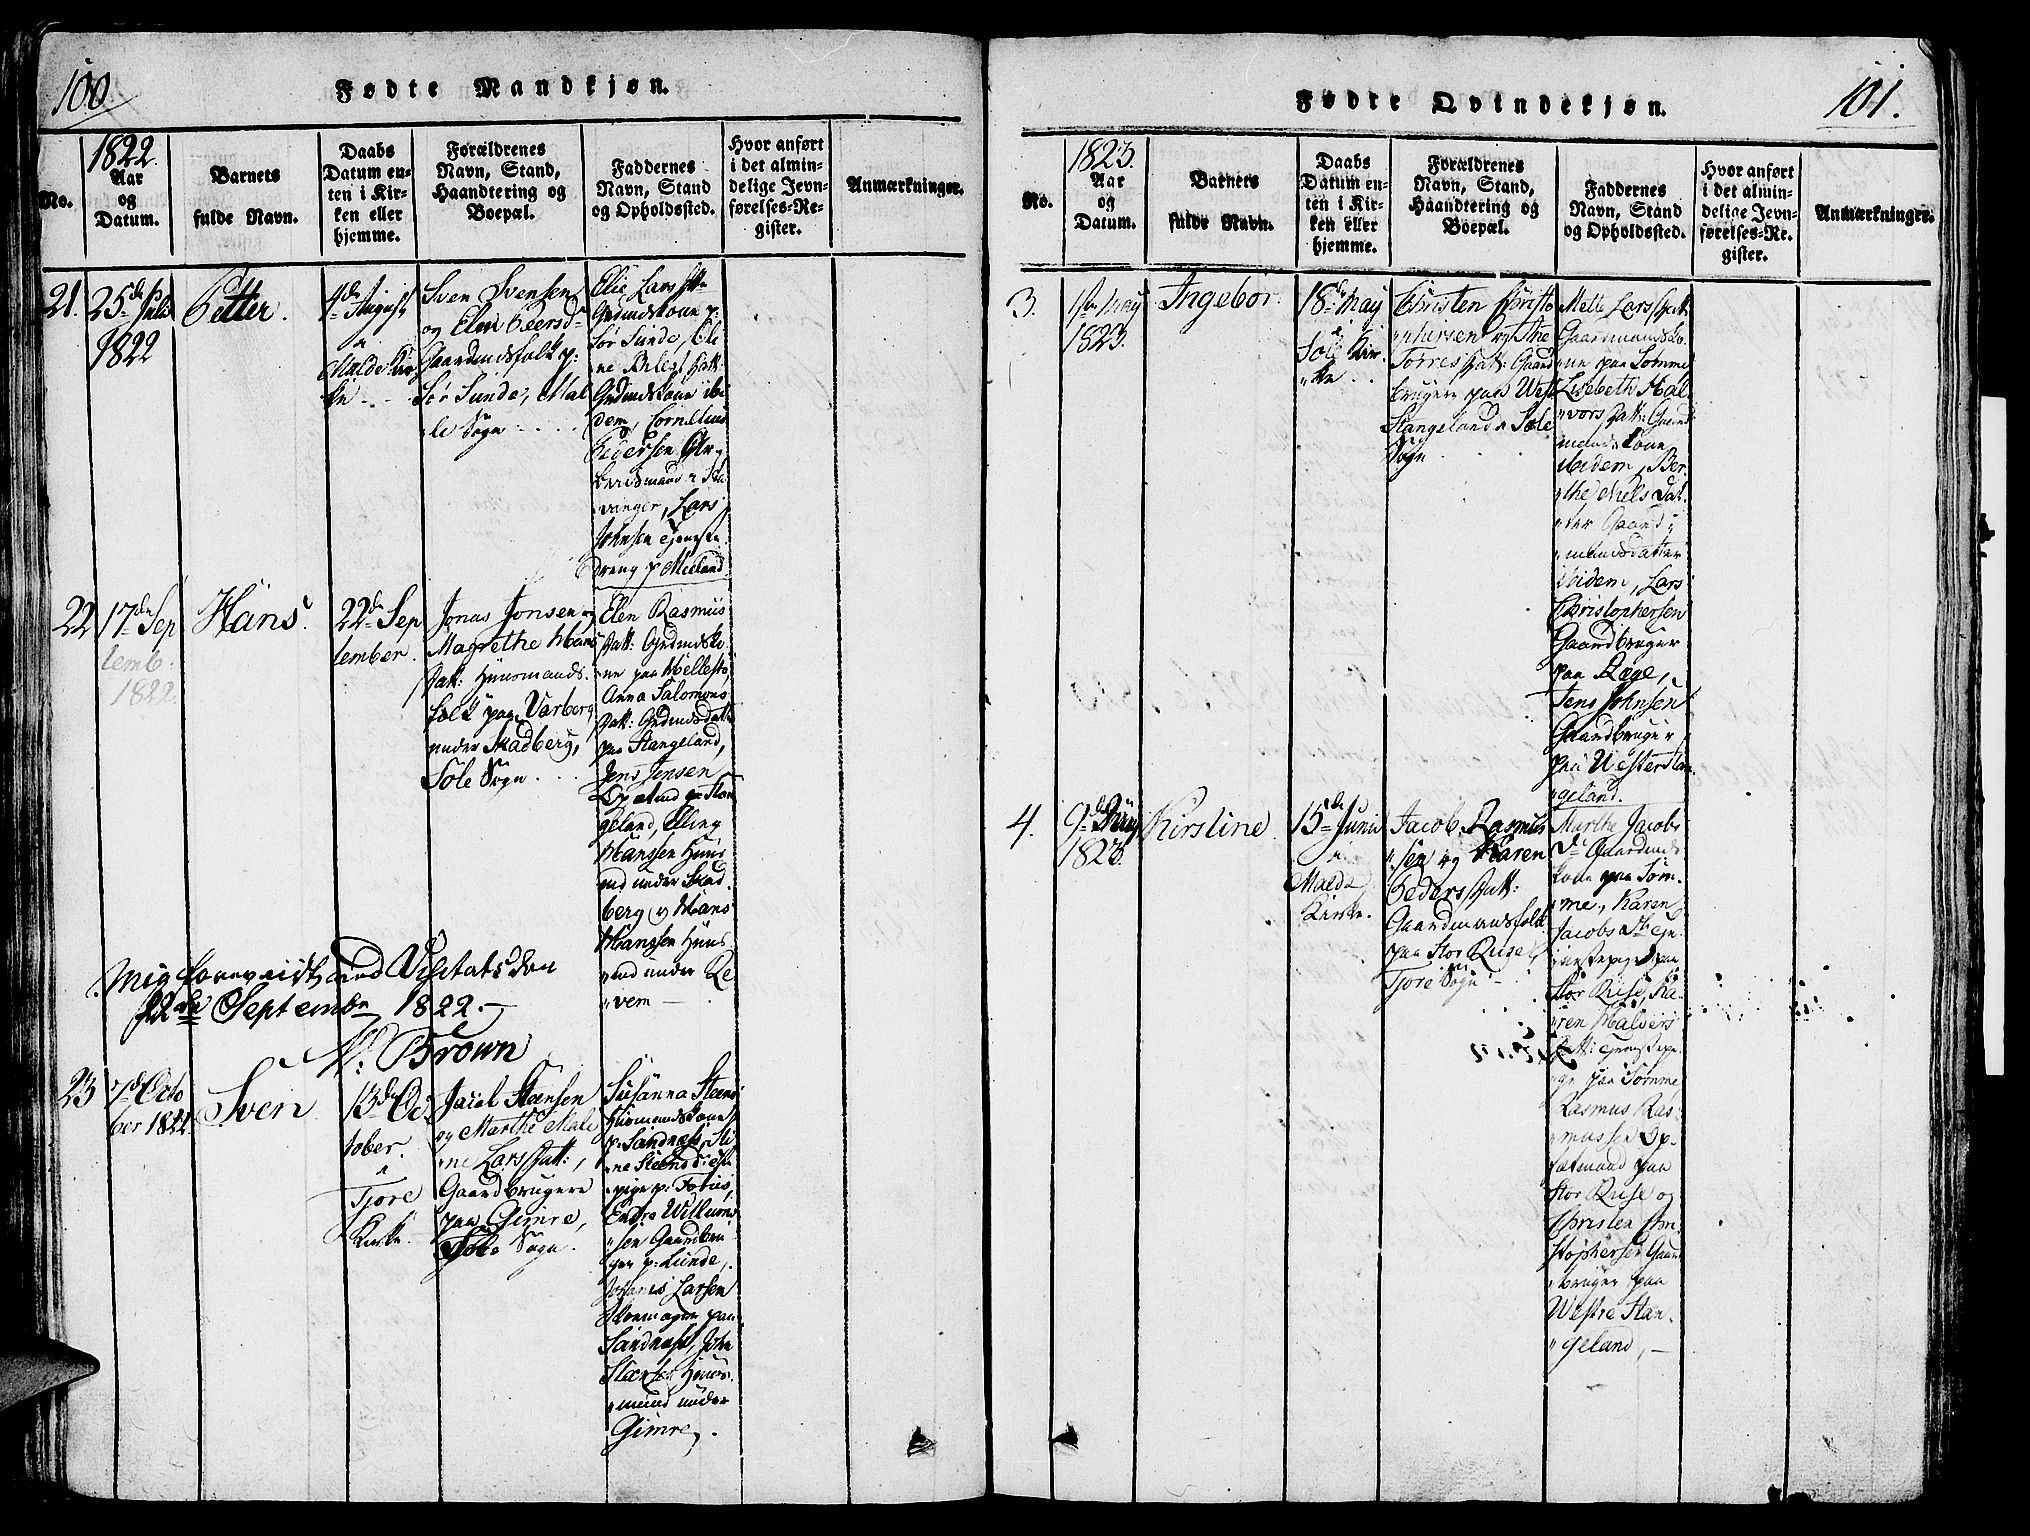 100
Fødte Mandkjøn.
No.
1822.
Aar
og
Datum.
Barnets
fulde Navn.
Daabs
Datum en-
ten i Kir-
ken eller
hjemme.
Forældrenes
Navn, Stand,
Haandtering og
Boepæl.
Faddernes
Navn, Stand
og Opholdssted.
Hvor anført
i det almin-
delige Jevn-
førelses-Re-
gister.
Anmærkninger.
21.
25de Juli
1822
Petter.
4de August
i
Malde Kir
ke
Sven Svensen
og Elen Peersd
Gaardmdsfolk p:
Sør Sunde, Mal
le Sogn
Elie Lars
Grdmdskone p:
Sør Sunde,
Grdmdskone ibi
dem, Cornelius
Pedersen
vanger, Lars
Johnsen Tjeneste
dreng p Meeland.
22
17de Sep
temb.
1822.
Hans.
22de Sep
tember.
Jonas Jonsen og
Magrethe Hans
Datt: Huusmands
folk paa Varberg
under Skadberg,
Sole Sogn.
Elen Rasmus
Datt: Grdmdsko
ne paa Mellestø,
Anna Salomons
Datt: Grdmdsdatt
paa Stangeland,
Jens Jensen
Opsetmd p Stan
geland, Elling
Hanssen Huus
md under Skad
berg og Hans
Hanssen Huus
md under Re
vem
Mig foreviist ved Visitats den
22de Septembr 1822.
N: Brown
23
7de Octo
ber 1822.
Sven
13de Oc
tober.
i
Tjore
Kirke.
Jacob Steensen
og Marthe Male
ne Lars Datt:,
Gaardbrugere
paa Gimre,
Sole Sogn.
Susanna Steens
Huusmandskone
p: Sandnæs, Sti
ne Steensd: Tje
pige p: Foʼuus,
Endre Willums
sen Gaardbru
ger p: Lunde,
Johanes Larsen
Skoemager paa
Sandnæs, John
Steensen Huus
mand under
Gimre.
101.
Fødte Qvindekjøn.
No.
1823.
Aar
og
Datum.
Barnets
fulde Navn.
Daabs
Datum en-
ten i Kir-
ken eller
hjemme.
Forældrenes
Navn, Stand,
Haandtering og
Boepæl.
Faddernes
Navn, Stand
og Opholdssted.
Hvor anført
i det almin-
delige Jevn-
førelses-Re-
gister.
Anmærkninger.
3.
1ste May
1823.
Ingebor.
18de May
i
Sole Kir
ke
Christen Christo
phersen og Ane
Torres Datt: Gaard
brugere paa West
Stangeland i Sole
Sogn
Mette Lars Datt:
Gaardmandsko
ne paa Sømme
Lisebeth Hal
vors Datt: Gaard
mandskone
ibidem, Ber
the Niels Dat
ter Gaard
mandsdatter
ibidem, Lars
Christophersen
Gaardbruger
paa Ræge,
Jens Johnsen
Gaardbruger
paa Wester Stan
geland.
4.
9de May
1823.
Kirstine
15de Junii
i
Malde
Kirke.
Jacob Rasmus
sen og Karen
Peders Datt:
Gaardmandsfolk
paa Stor Riise,
Tjore Sogn
Marthe Jacobs
Dr Gaardmds
kone paa Søm
me, Karen
Jacobs Dtr Tje
nestepige paa
Stor Riise, Ka
ren Halvers
Datt: Tjenestepi
ge paa Sømme
Rasmus Ras
mussen Op
sætmand paa
Stor Riise og
Christen Chri
stophersen Gaard
bruger paa
Westre Stan
geland,